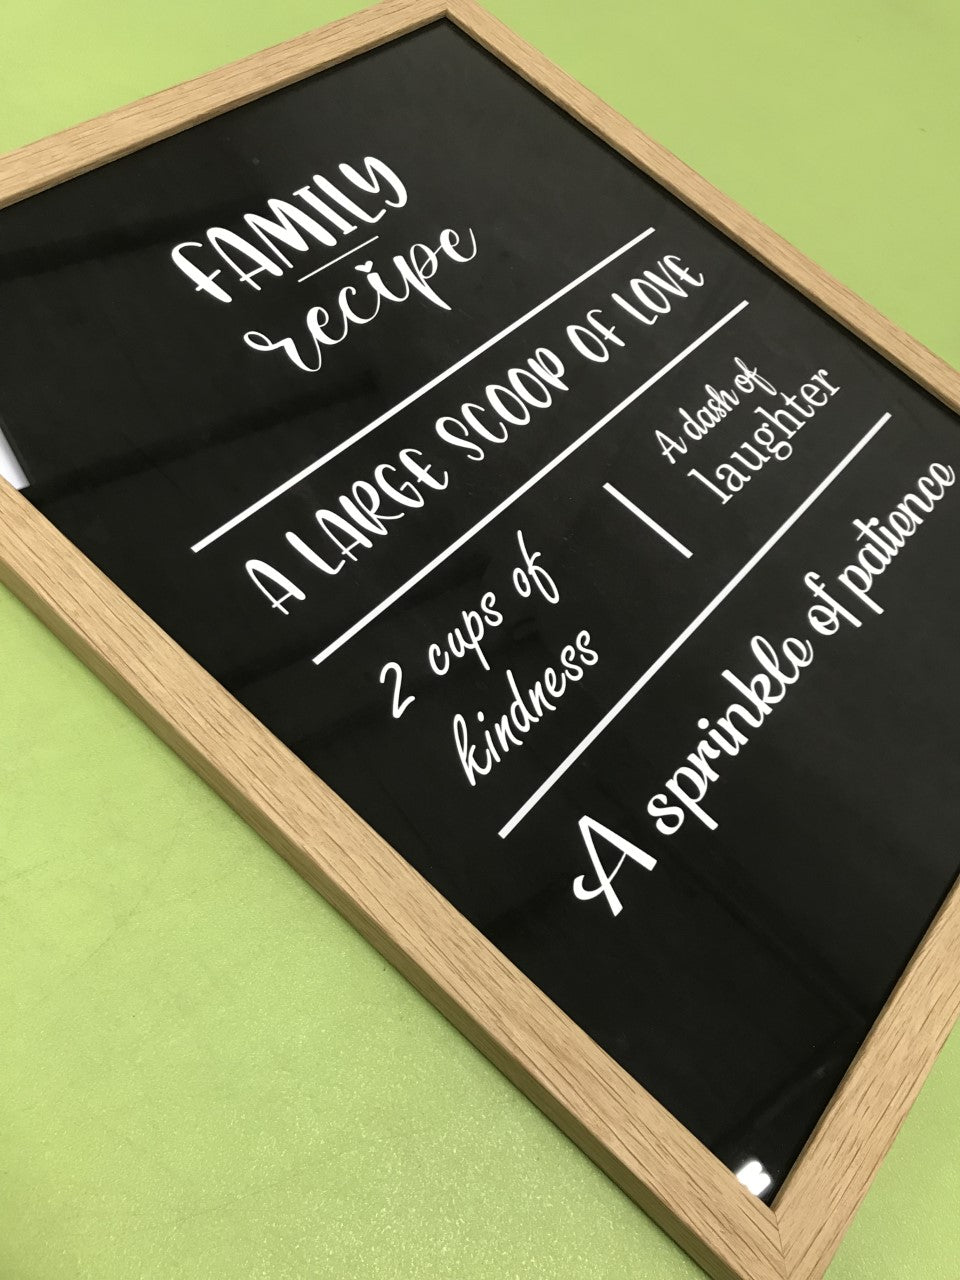 FAMILY
recipe
A LARGE SCOOP OF LOVE
2 cups of
kindness
A dash of
laughter
A sprinkle of patience